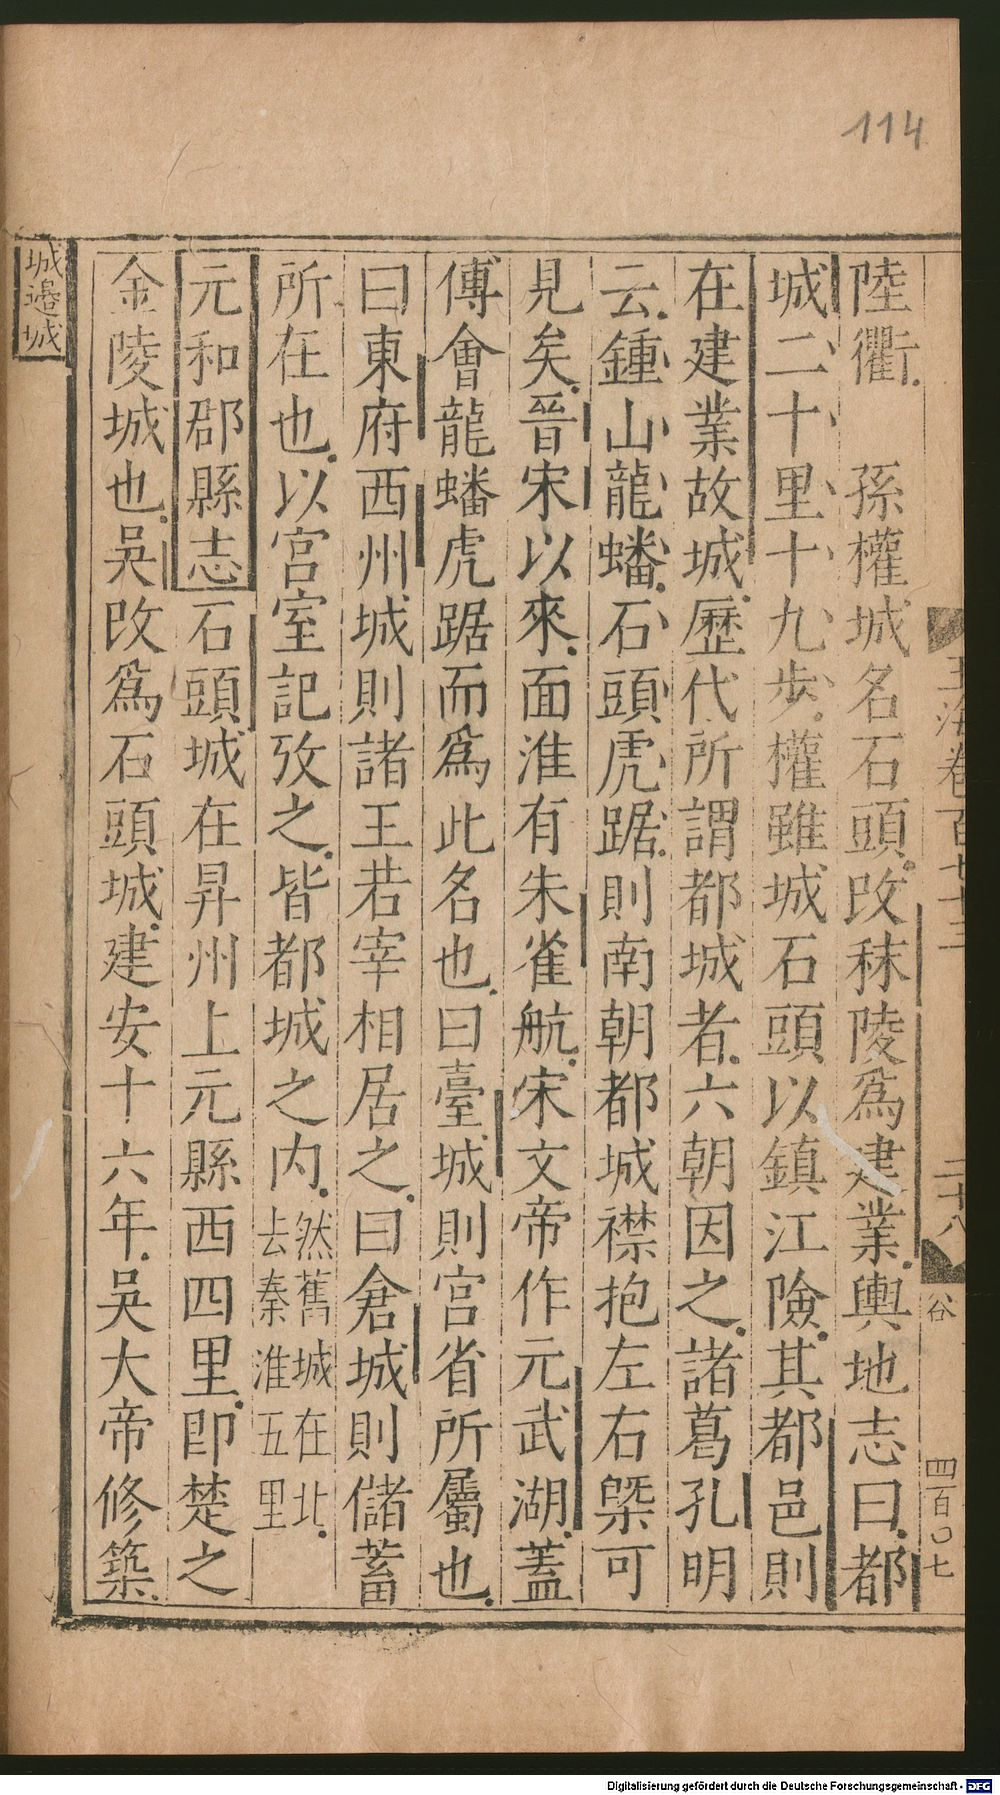 114
陸衢　孫權城名石頭改秣陵爲建業輿地志曰都
城二十里十九步權雖城石頭以鎮江險其都邑則
在建業故城歷代所謂都城者六朝因之諸葛孔明
云鍾山龍蟠石頭虎踞則南朝都城襟抱左右槩可
見矣晉宋以來面淮有朱雀航宋文帝作元武湖蓋
傅會龍蟠虎踞而爲此名也曰臺城則宮省所屬也
曰東府西州城則諸王若宰相居之曰倉城則儲蓄
所在也以宮室記攷之皆都城之内然舊城在北
去秦淮五里
元和郡縣志石頭城在昇州上元縣西四里即楚之
金陵城也吳改爲石頭城建安十六年吳大帝修築
城邉城
玉海卷百七十三
二十八
谷
四百〇七
Digitalisierung gefördert durch die Deutsche Forschungsgemeinschaft - DFG